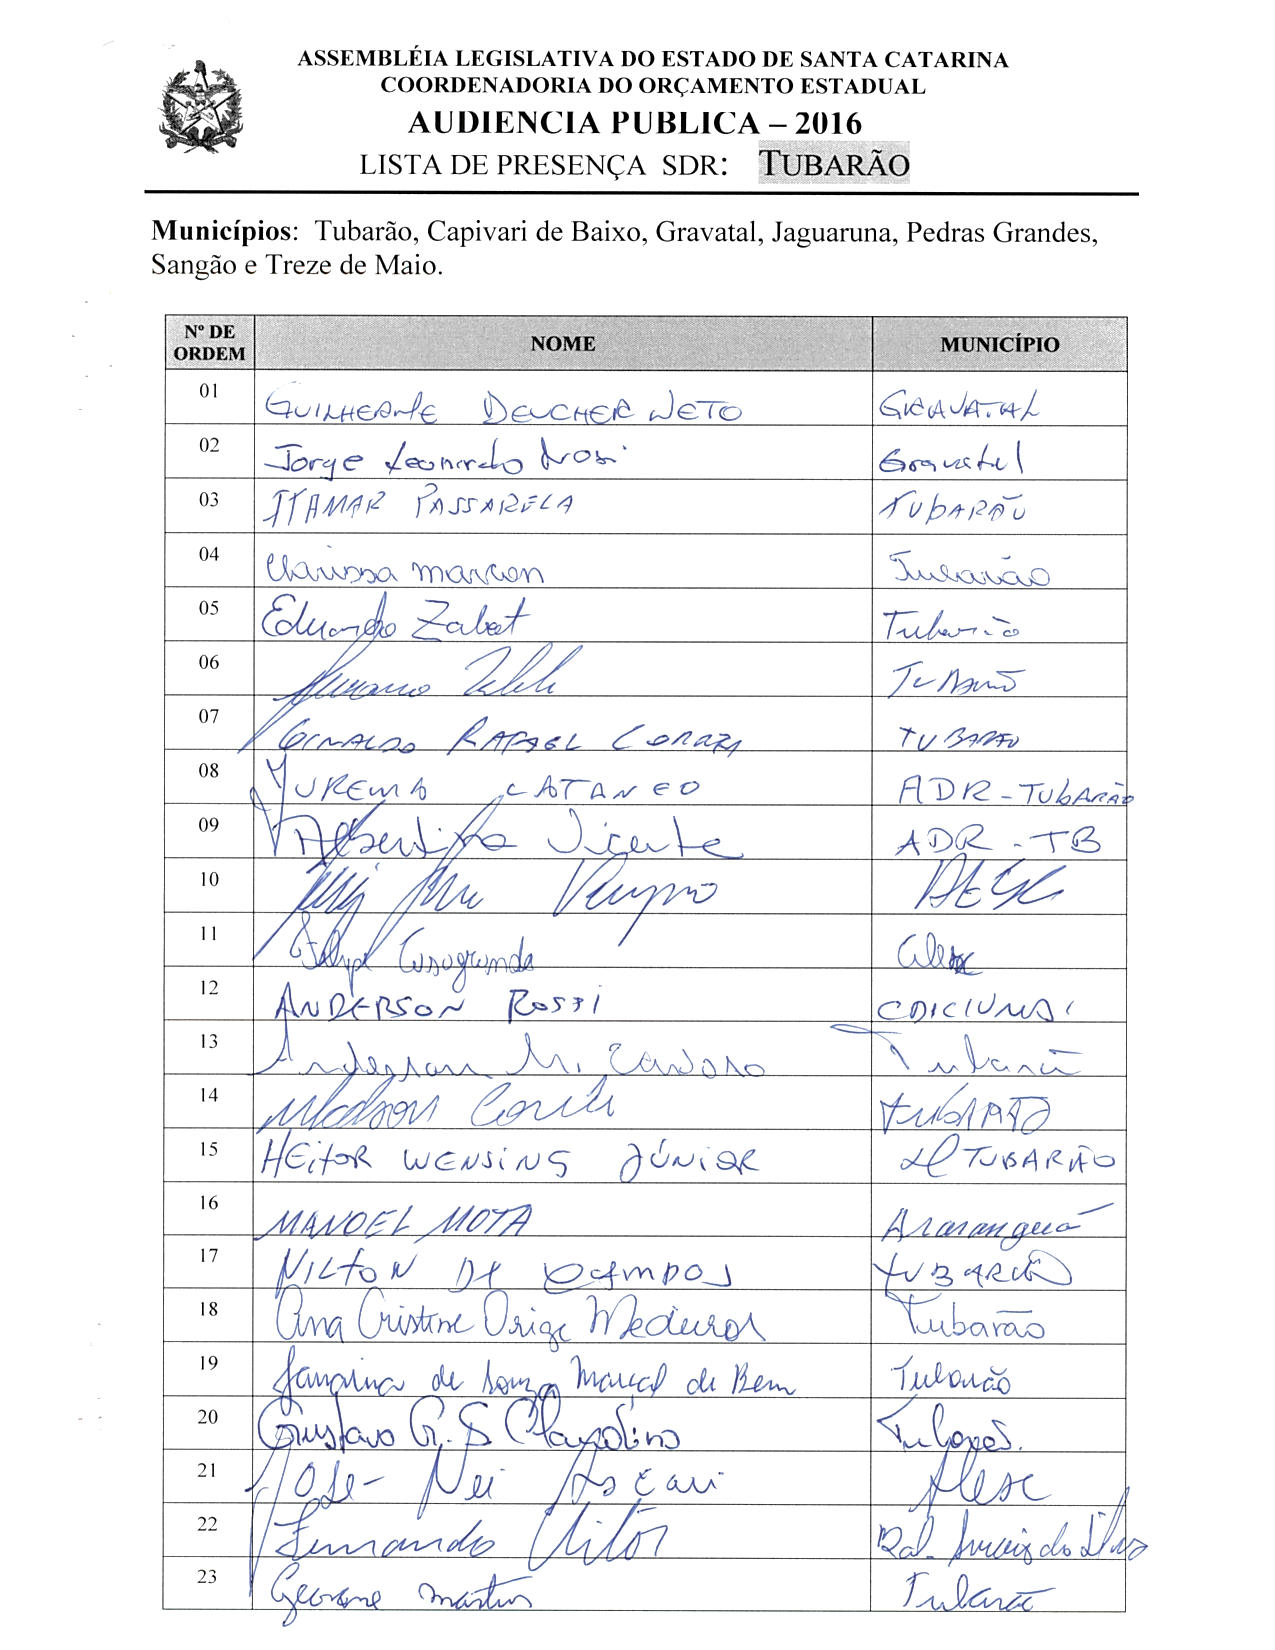 ASSEMBLÉIA LEGISLATIVA DO ESTADO DE SANTA CATARINA
COORDENADORIA DO ORÇAMENTO ESTADUAL
AUDIENCIA PUBLICA – 2016
LISTA DE PRESENÇA SDR: TUBARÃO
Municípios: Tubarão, Capivari de Baixo, Gravatal, Jaguaruna, Pedras Grandes,
Sangão e Treze de Maio.
Nº DE ORDEM NOME MUNICÍPIO
01 GUILHERME DEUCHER NETO GRAVATAL
02 Jorge Leonardo Gravatal
03 ITAMAR PASSARELA TUBARÃO
04 Clarissa Marcon Tubarão
05 Eduardo Zabot Tubarão
06 TUBARÃO
07 RAFAEL TUBARÃO
08 JUREMA CATANEO ADR - TUBARÃO
09 Albertina Vicente ADR - TB
10
11 Felipe Casagrande Alesc
12 ANDERSON ROSSI
13 Anderson M. Cardoso Tubarão
14 TUBARÃO
15 HEITOR WENSING JÚNIOR TUBARÃO
16 MANOEL MOTA Araranguá
17 NILTON DE CAMPOS TUBARÃO
18 Ana Cristine Medeiros Tubarão
19 de Souza Marçal de Bem Tubarão
20 Gustavo G. S Claudino
21 Jose Nei Ascari Alesc
22 Fernando Vitor
23 Geovane Martins Tubarão